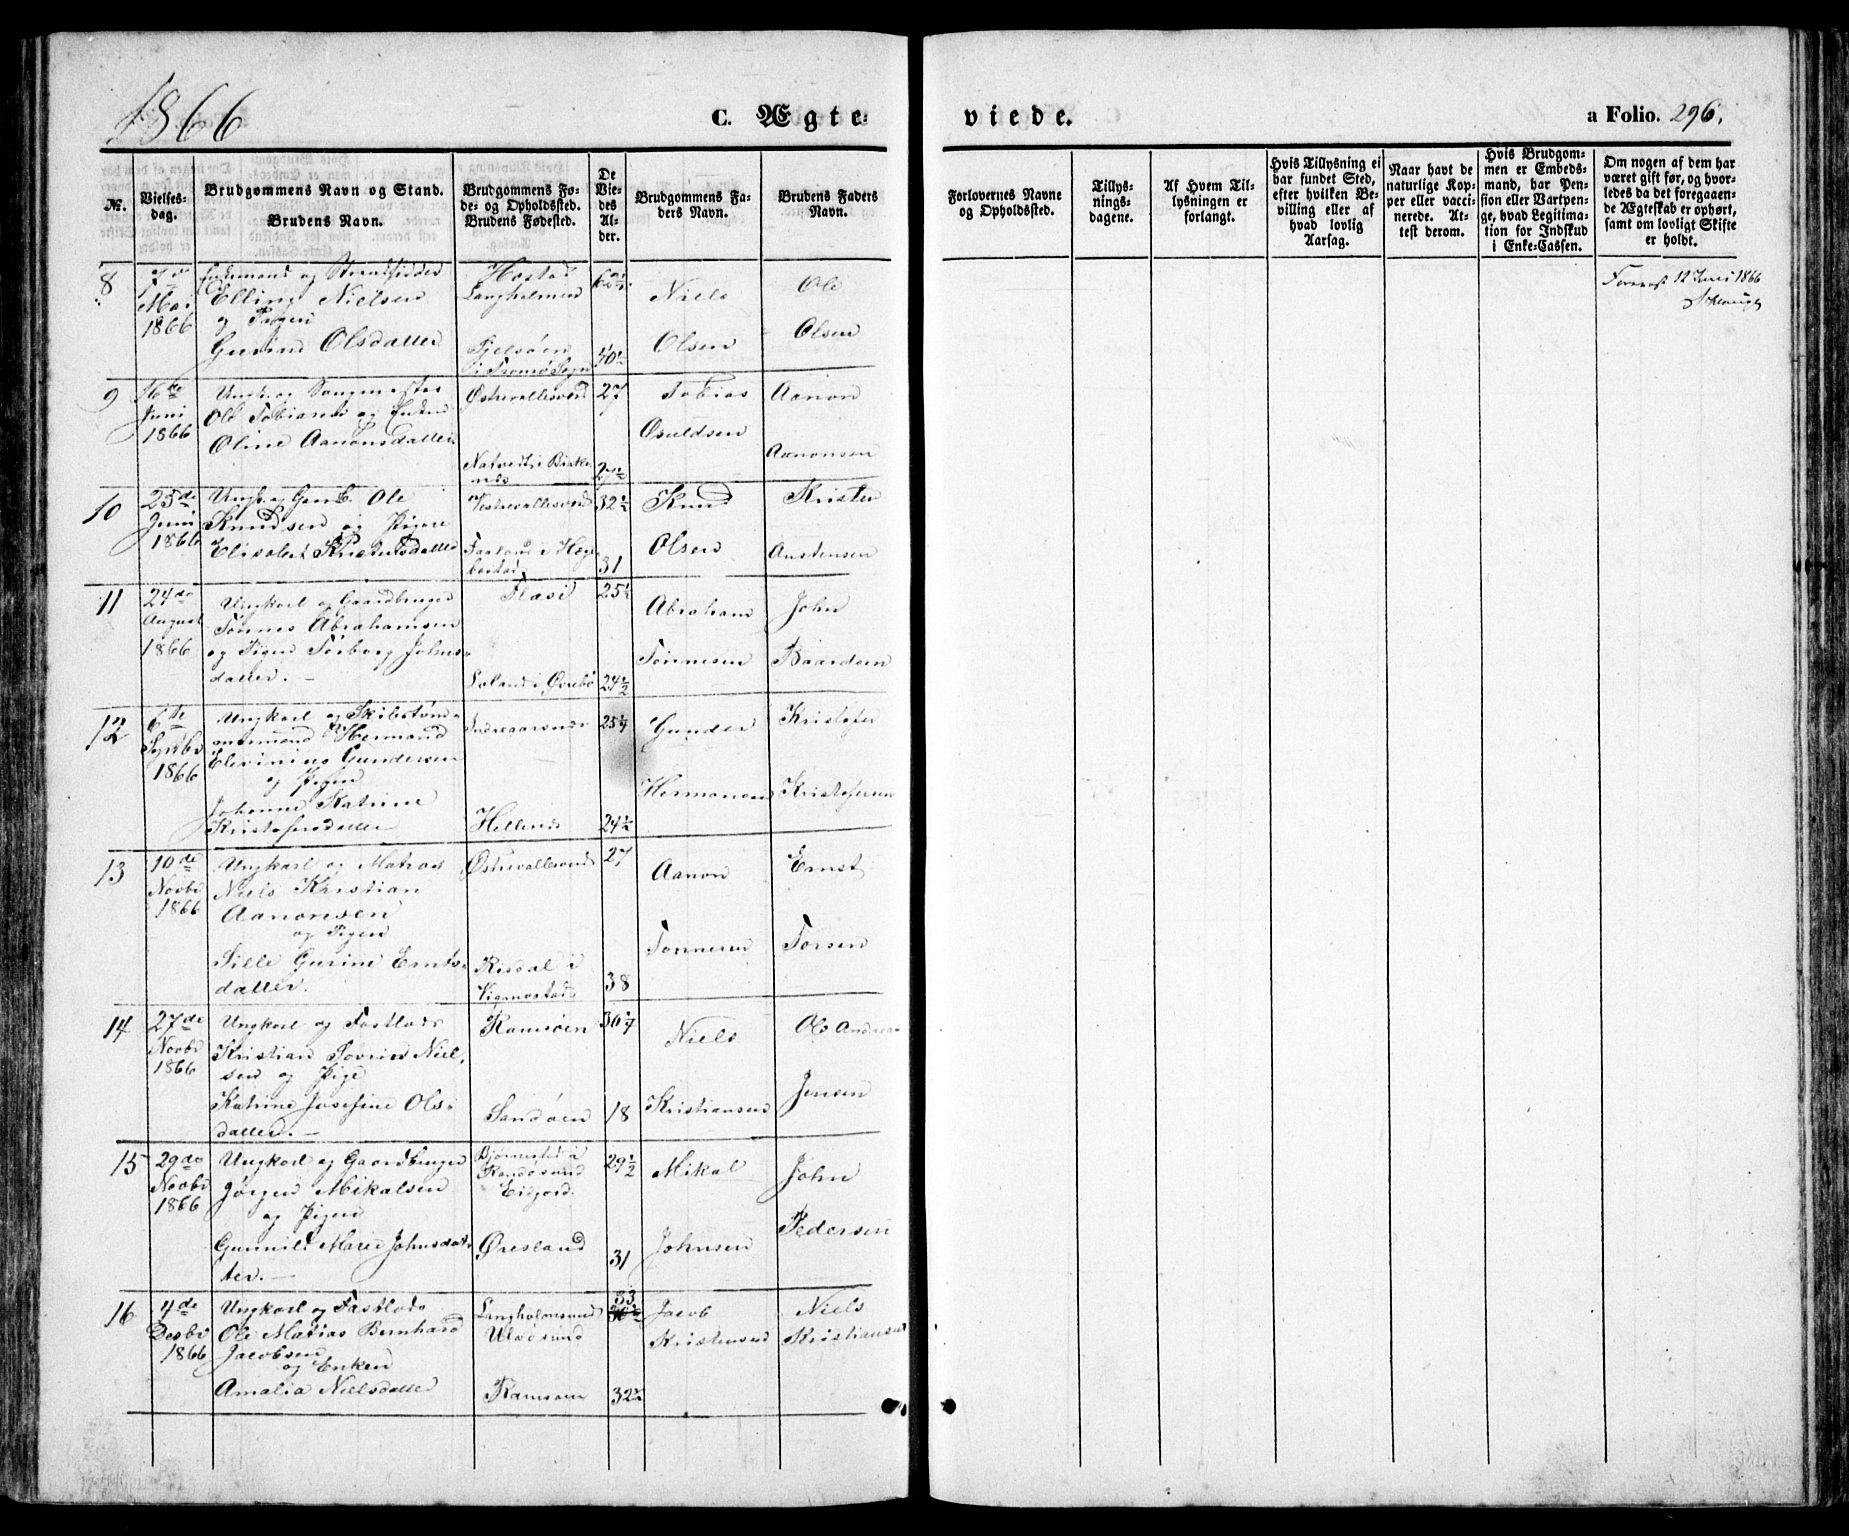 1866
C. Ægte-
viede.
a Folio. 296.
№.
Vielses-
dag.
Brudgommens Navn og Stand.
Brudens Navn.
Brudgommens Fø-
de- og Opholdssted.
Brudens Fødested.
De
Vie-
des
Al-
der.
Brudgommens Fa-
ders Navn.
Brudens Faders
Navn.
Forlovernes Navne
og Opholdssted.
Tillys-
nings-
dagene.
Af Hvem Til-
lysningen er
forlangt.
Hvis Tillysning ei
har fundet Sted,
efter hvilken Be-
villing eller af
hvad lovlig
Aarsag.
Naar havt de
naturlige Kop-
per eller vacci-
nerede. At-
test derom.
Hvis Brudgom-
men er Embeds-
mand, har Pen-
sion eller Vartpen-
ge, hvad Legitima-
tion for Indskud
i Enke-Cassen.
Om nogen af dem har
været gift før, og hvor-
ledes da det foregaaen-
de Ægteskab er ophørt,
samt om lovligt Skifte
er holdt.
8
Mai
1866
Enkemand og Strandsidder
Elling Nielsen
og Pigen
Gurine Olsdatter
Langholmen
i Tromø Sogn
40½
Niels
Olsen
Ole
Olsen
12 Juni 1866
9
16de
Juni
1866
Ungk. og
Ole Tobiassen og Enken
Oline Aanonsdatter
Østrevallesverd
27
27½
Tobias
Osuldsen
Aanon
Aanonsen
10
25de
Juni
1866
Ungk. og Gaardb. Ole
Knudsen og Pigen
Elisabet Kristensdatter
Vestrevallesverd
i Hæg-
bostad
32½
31
Knud
Olsen
Kristen
Anstensen
11
24de
August
1866
Ungkarl og Gaardbruger
Tønnes Abrahamsen
og Pigen Torborg Johns-
datter. –
Loland i Øvrebø
25½
24½
Abraham
Tønnesen
John
Baardsen
12
6te
1866
Ungkarl og Skibstøm-
mermand Hermand
Elevinius Gundersen
og Pigen
Johanne Katrine
Kristofersdatter
Indreaarsnes
Hellenes
24½
Gunder
Hermansen
Kristofer
Kristofersen
13
10de
Novbr
1866
Ungkarl og Matros
Niels Kristian
Aanonsen
og Pigen
Sille Gurine Ernts-
datter.
Østrevallesverd
Risdal i
Vigmostad
27
38
Aanon
Tønnesen
Ernst
Torsen
14
27de
Novbr
1866
Ungkarl og Fastlods
Kristian Severin Niel-
sen og Pige
Katrine Josefine Ols-
datter. –
Ramsøen
Sandøen
18
Niels
Kristiansen
Ole Andreas
Jensen
15
29de
Novbr
1866
Ungkarl og Gaardbruger
Jørgen Mikalsen
og Pigen
Gunnild Marie Johnsdat-
ter. –
Bjørnestad i
Randøsund
Eidjord.
Øresland
29½
31
Mikal
Johnsen
John
Pedersen
16
4de
Desbr
1866
Ungkarl og Fastlods
Ole Matias Bernhard
Jacobsen
og Enken
Amalia Nielsdatter
Langholmsund
Ulvøsund
Ramsøen
33
32½
Jacob
Kristensen
Niels
Kristiansen